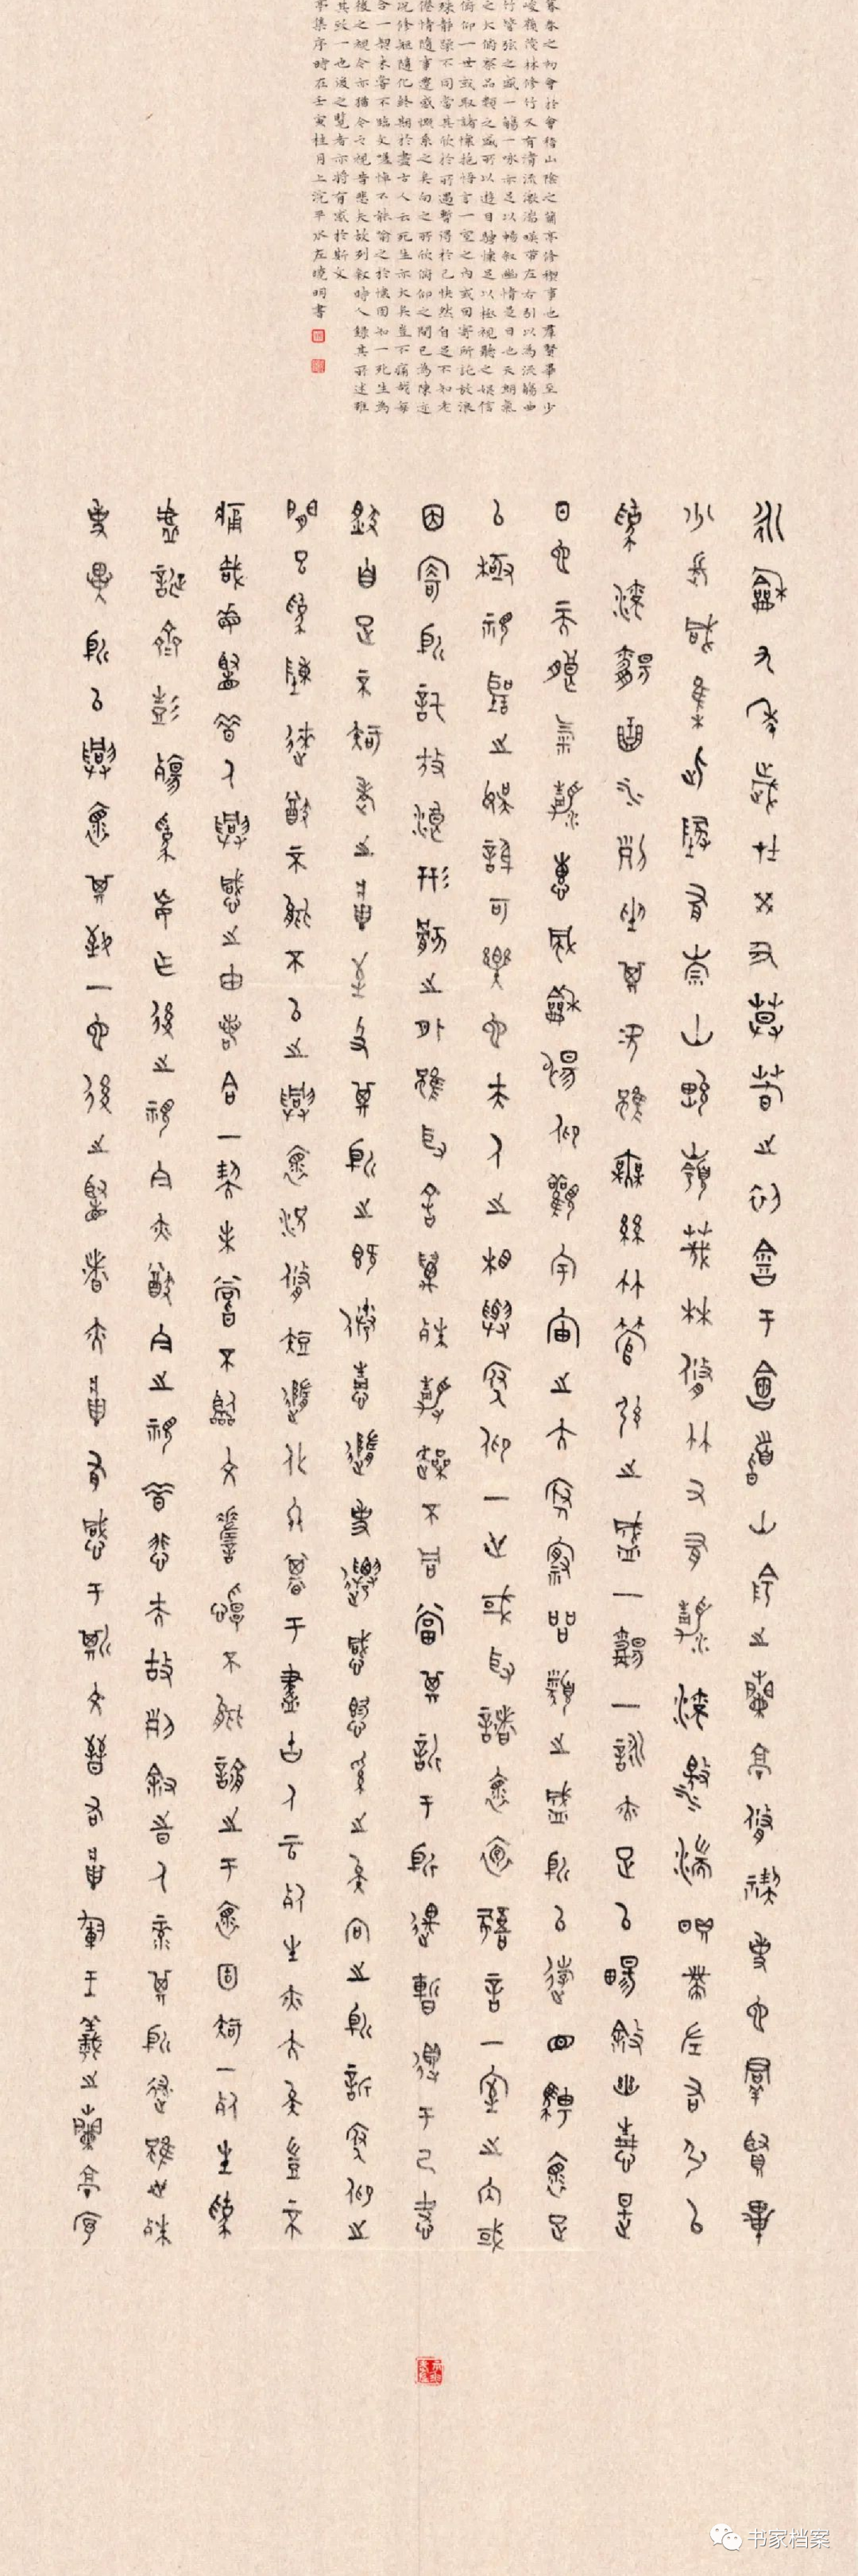 暮春之初會於會稽山陰之蘭亭脩禊事也羣賢畢至少
峻嶺茂林修竹又有清流激湍暎帶左右引以為流觴曲
竹管弦之盛一觴一詠亦足以暢叙幽情是日也天朗氣
之大俯察品類之盛所以遊目騁懷足以極視聽之娛信
俯仰一世或取諸懷抱悟言一室之內或因寄所託放浪
殊靜躁不同當其欣於所遇暫得於己快然自足不知老
倦情隨事遷感慨系之矣向之所欣俯仰之間已為陳迹
况修短隨化終期於盡古人云死生亦大矣豈不痛哉每
合一契未嘗不臨文嗟悼不能喻之於懷固知一死生為
後之視今亦猶今之視昔悲夫故列叙時人錄其所述雖
其致一也後之覽者亦將有感於斯文
亭集序時在壬寅桂月上浣平水左曉明書
永和九年歲在癸丑暮春之初會于會稽山陰之蘭亭脩禊事也羣賢畢
少長咸集此地有崇山峻嶺茂林脩竹又有清流激湍映帶左右引以
為流觴曲水列坐其次雖無絲竹管弦之盛一觴一詠亦足以暢叙幽情是
日也天朗氣清惠風和暢仰觀宇宙之大俯察品類之盛所以遊目騁懷足
以極視聽之娛信可樂也夫人之相與俯仰一世或取諸懷抱悟言一室之內或
因寄所託放浪形骸之外雖取舍萬殊靜躁不同當其欣于所遇暫得于己快
然自足不知老之將至及其所之既倦情隨事遷感慨系之矣向之所欣俯仰之
間已為陳迹猶不能不以之興懷况脩短隨化終期于盡古人云死生亦大矣豈不
痛哉每覽昔人興感之由若合一契未嘗不臨文嗟悼不能喻之于懷固知一死生為
虛誕齊彭殤為妄作後之視今亦猶今之視昔悲夫故列叙時人錄其所述雖世殊
事異所以興懷其致一也後之覽者亦將有感于斯文晉右將軍王羲之蘭亭序
书家档案